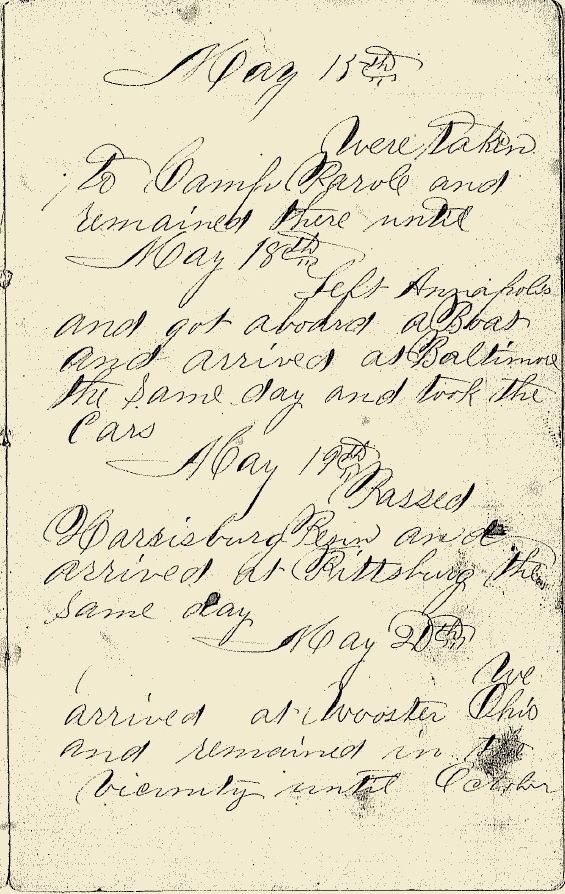 May 15th
Were taken
to Camp Parole and
remained there until
May 18th
Left Annapolis
and got aboard a Boat
and arrived at Baltimore
the same day and took the
Cars
May 19th
Passed
Harrisburg Penn and
arrived at Pittsburg the
same day
May 20th
We
arrived at Wooster Ohio
and remained in the
vicinity until October